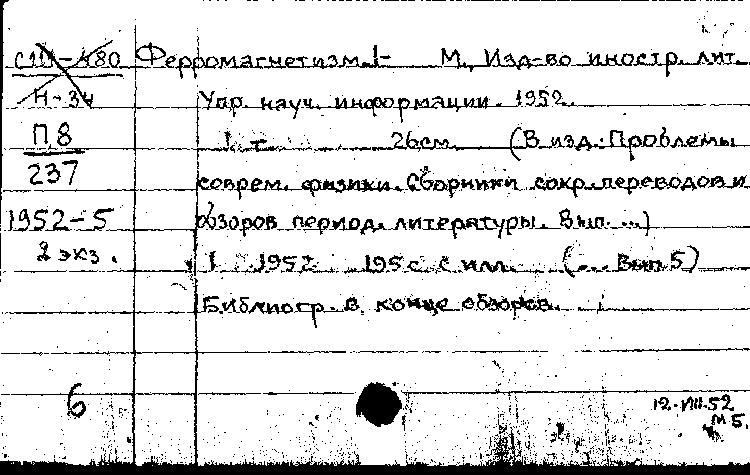 Ферромагнетизм. 1- М., Изд-во иностр. лит.
Н-34
Упр. науч. информации. 1952.
П8
237
1 т. 26см. (В изд.: Проблемы
соврем. физики. Сборники сокр. переводов и
обзоров период. литературы. Вып. ...)
1952-5
2 экз.
1 1952 195 с. с илл. (... Вып 5)
Библиогр. в конце обзоров.
6
12.VIII.52
М5.